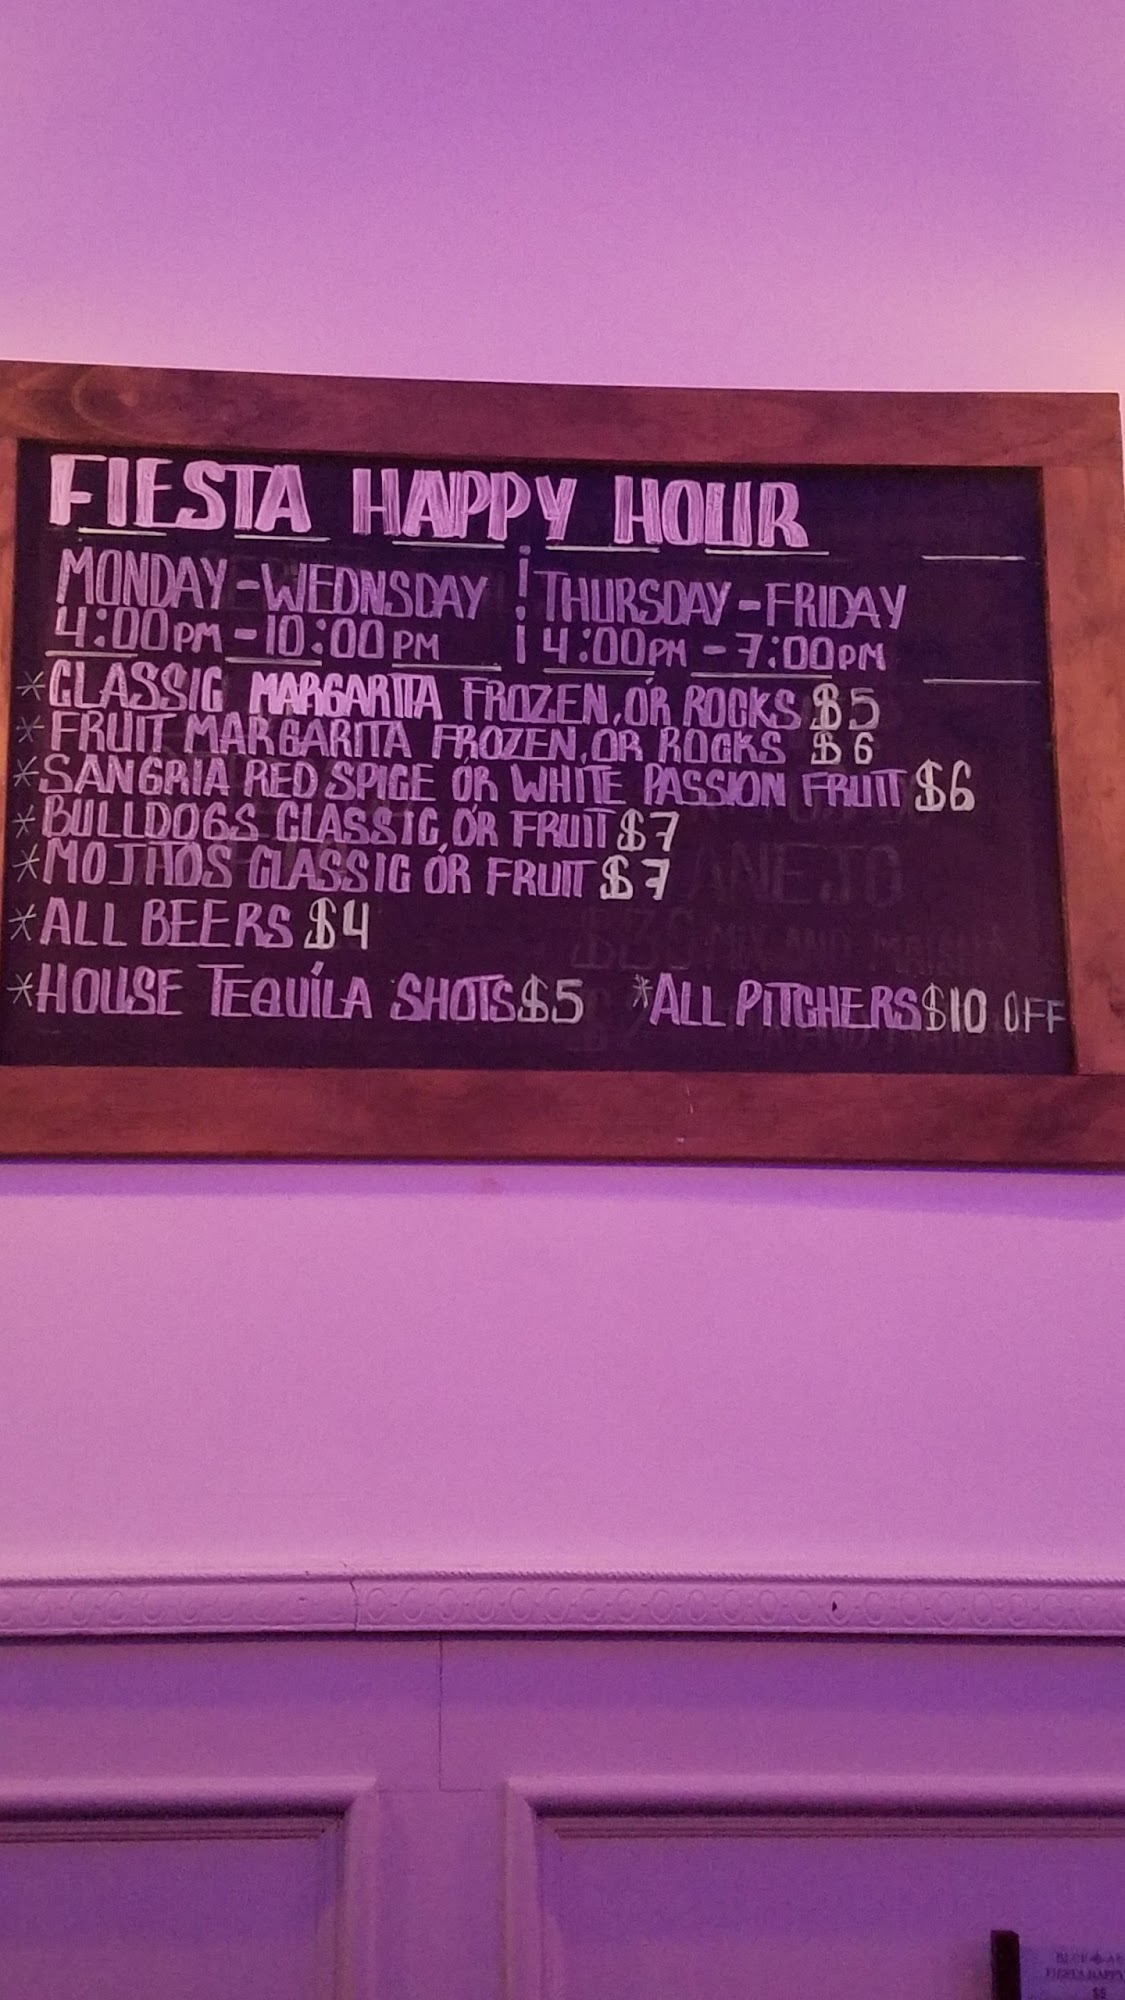 FIESTA HAPPY HOUR
MONDAY-WEDNSDAY ¦ THURSDAY-FRIDAY
4:00PM-10:00PM ¦ 4:00PM-7:00PM
*CLASSIC MARGARITA FROZEN, OR ROCKS $5
*FRUIT MARGARITA FROZEN, OR ROCKS $6
*SANGRIA RED SPICE OR WHITE PASSION FRUIT $6
*BULLDOGS CLASSIC, OR FRUIT $7
*MOJITOS CLASSIC OR FRUIT $7
AÑEJO
*ALL BEERS $4
*HOUSE TEQUÍLA SHOTS $5 *ALL PITCHERS $10 OFF
FIESTA HAPPY